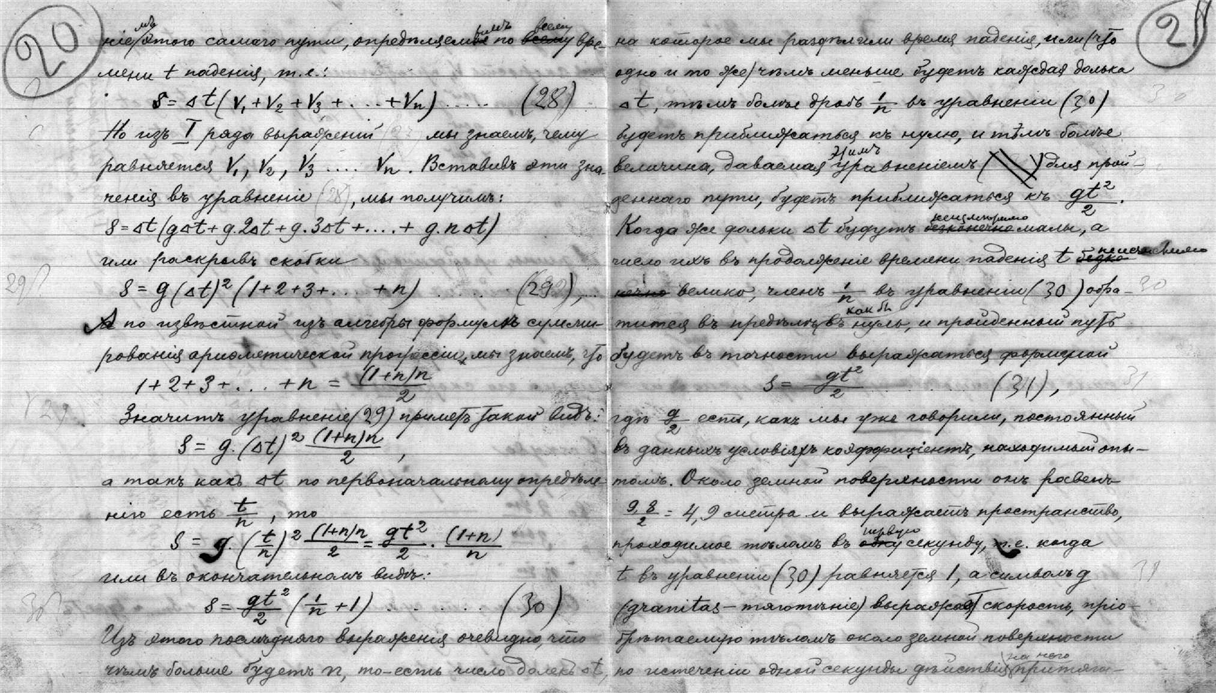 20
ніемъ этого самаго пути, опредѣляемымъ по всему вре-
мени t паденія, т.е.:
s = Δt (V₁ + V₂ + V₃ + . . . + Vₙ) . . . . . (28)
Но изъ I ряда выраженій мы знаемъ, чему
равняется V₁, V₂, V₃ .... Vₙ. Вставивъ эти зна-
ченія въ уравненіе (28), мы получимъ:
s = Δt (gΔt + g.2Δt + g.3Δt + . . . + g.nΔt)
или раскрывъ скобки
s = g (Δt)² (1+2+3+ . . . + n) . . . . . . (29), ...
А по извѣстной изъ алгебры формулѣ сумми-
рованія ариѳметической прогрессіи, мы знаемъ, что
1 + 2 + 3 + . . . + n = (1+n)n/2
Значитъ уравненіе (29) приметъ такой видъ:
s = g. (Δt)² (1+n)n/2 ,
а такъ какъ Δt по первоначальному опредѣле-
нію есть t/n , то
s = g. (t/n)² (1+n)n/2 = gt²/2 . (1+n)/n
или въ окончательномъ видѣ:
s = gt²/2 (1/n + 1) . . . . . . . (30)
Изъ этого послѣдняго выраженія очевидно, что
чѣмъ больше будетъ n, то-есть число долекъ Δt,
21
на которое мы раздѣлили время паденія, или (что
одно и то же) чѣмъ меньше будетъ каждая долька
Δt, тѣмъ болѣе дробь 1/n въ уравненіи (30)
будетъ приближаться къ нулю, и тѣмъ болѣе
величина, даваемая этимъ уравненіемъ для прой-
деннаго пути, будетъ приближаться къ gt²/2.
Когда же дольки Δt будутъ неизмѣримо малы, а
число ихъ въ продолженіе времени паденія t
велико, членъ 1/n въ уравненіи (30) обра-
тится въ предѣлѣ какъ бы въ нуль, и пройденный путь
будетъ въ точности выражаться формулой
s = gt²/2 . . . . . . (31),
гдѣ g/2 есть, какъ мы уже говорили, постоянный
въ данныхъ условіяхъ коэффиціентъ, находимый опы-
томъ. Около земной поверхности онъ равенъ
9.8/2 = 4,9 метра и выражаетъ пространство,
проходимое тѣломъ въ первую секунду, т.е. когда
t въ уравненіи (30) равняется 1, а символъ g
(granitas – тяготѣніе) выражаетъ скорость, прiо-
брѣтаемую тѣломъ около земной поверхности
по истеченіи одной секунды дѣйствія на него притяга-